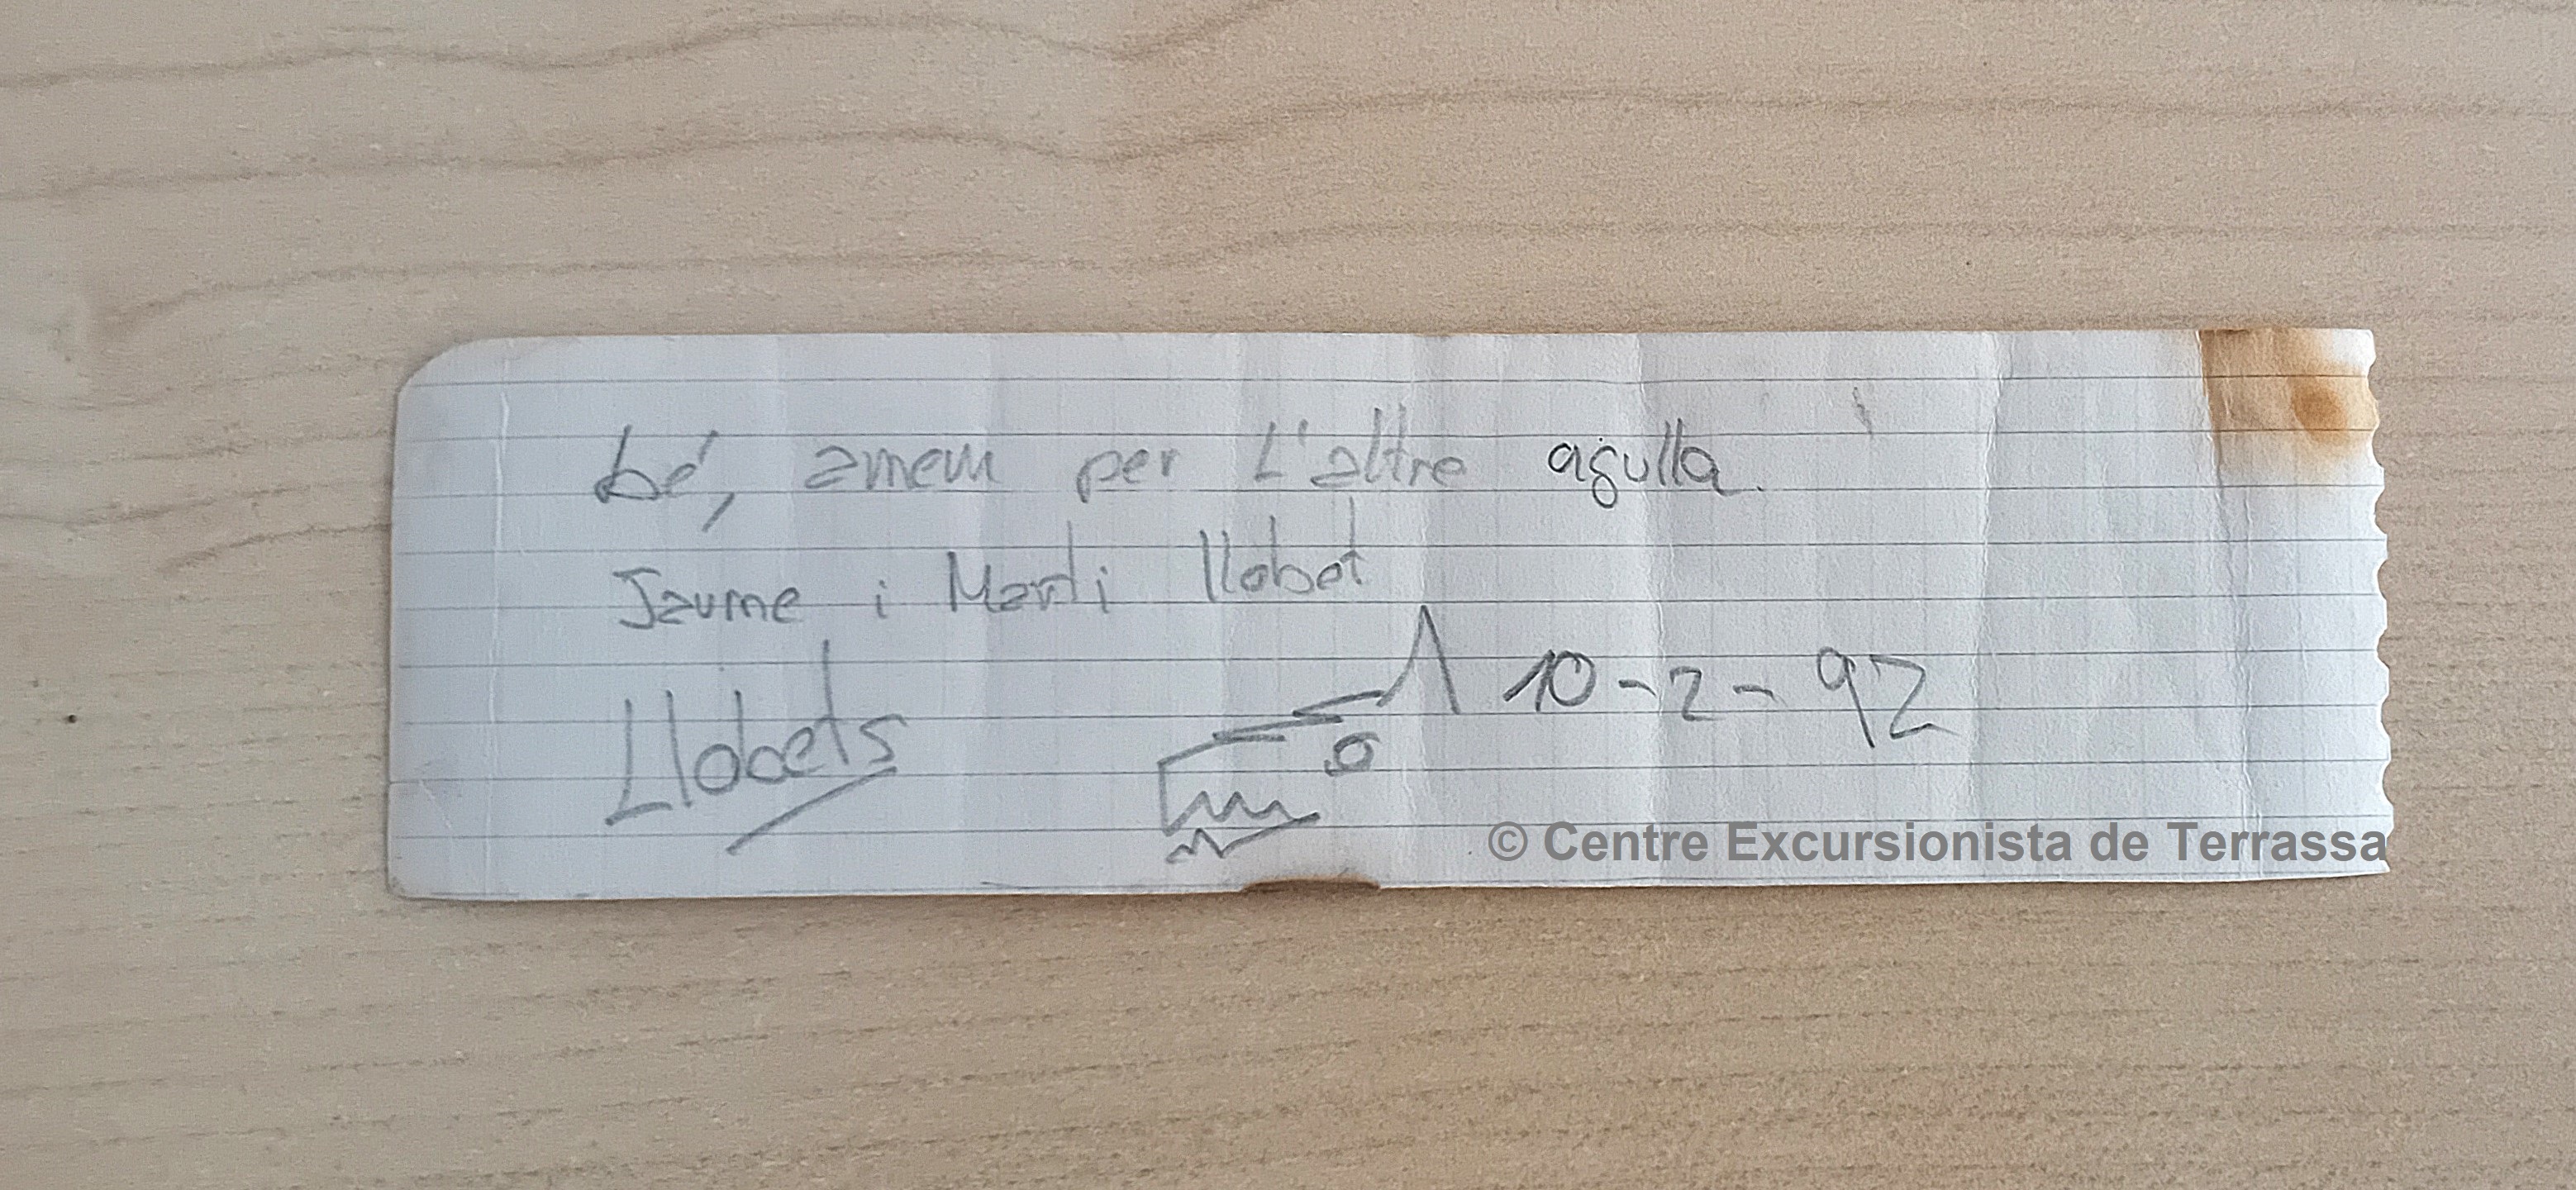 bé, anem per L'altre agulla.
Jaume i Martí llobet
Llobets
10-2-92
© Centre Excursionista de Terrassa